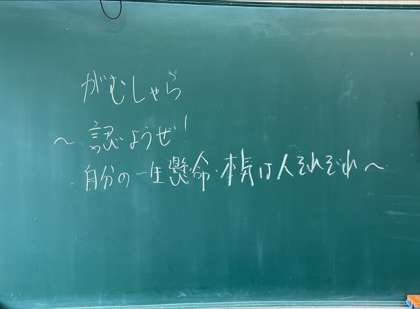 がむしゃら
〜認めようぜ!
自分の一生懸命・本気は人それぞれ〜